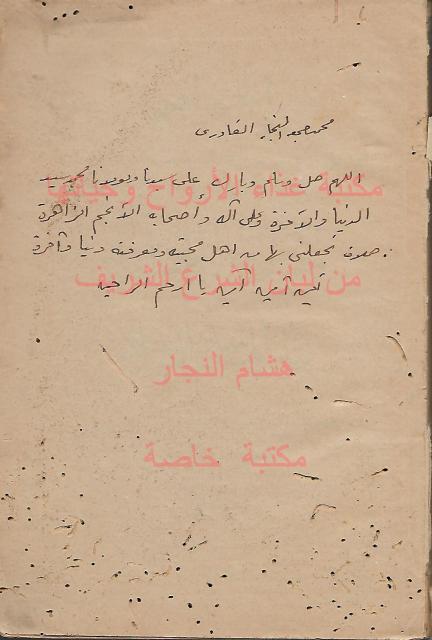 محمد النجار القادري
اللهم صل وسلم وبارك على سيدنا ومولانا محمد سيد
مكتبة غذاء الأرواح وحياتها
الدنيا والآخرة وعلى آله وأصحابه الأنجم الزاهرة
صلاة تجعلني بها من اهل محبته ومعرفته دنيا وآخرة
من لبان الشرع الشريف
آمين آمين آمين يا ارحم الراحمين
هشام النجار
مكتبة خاصة